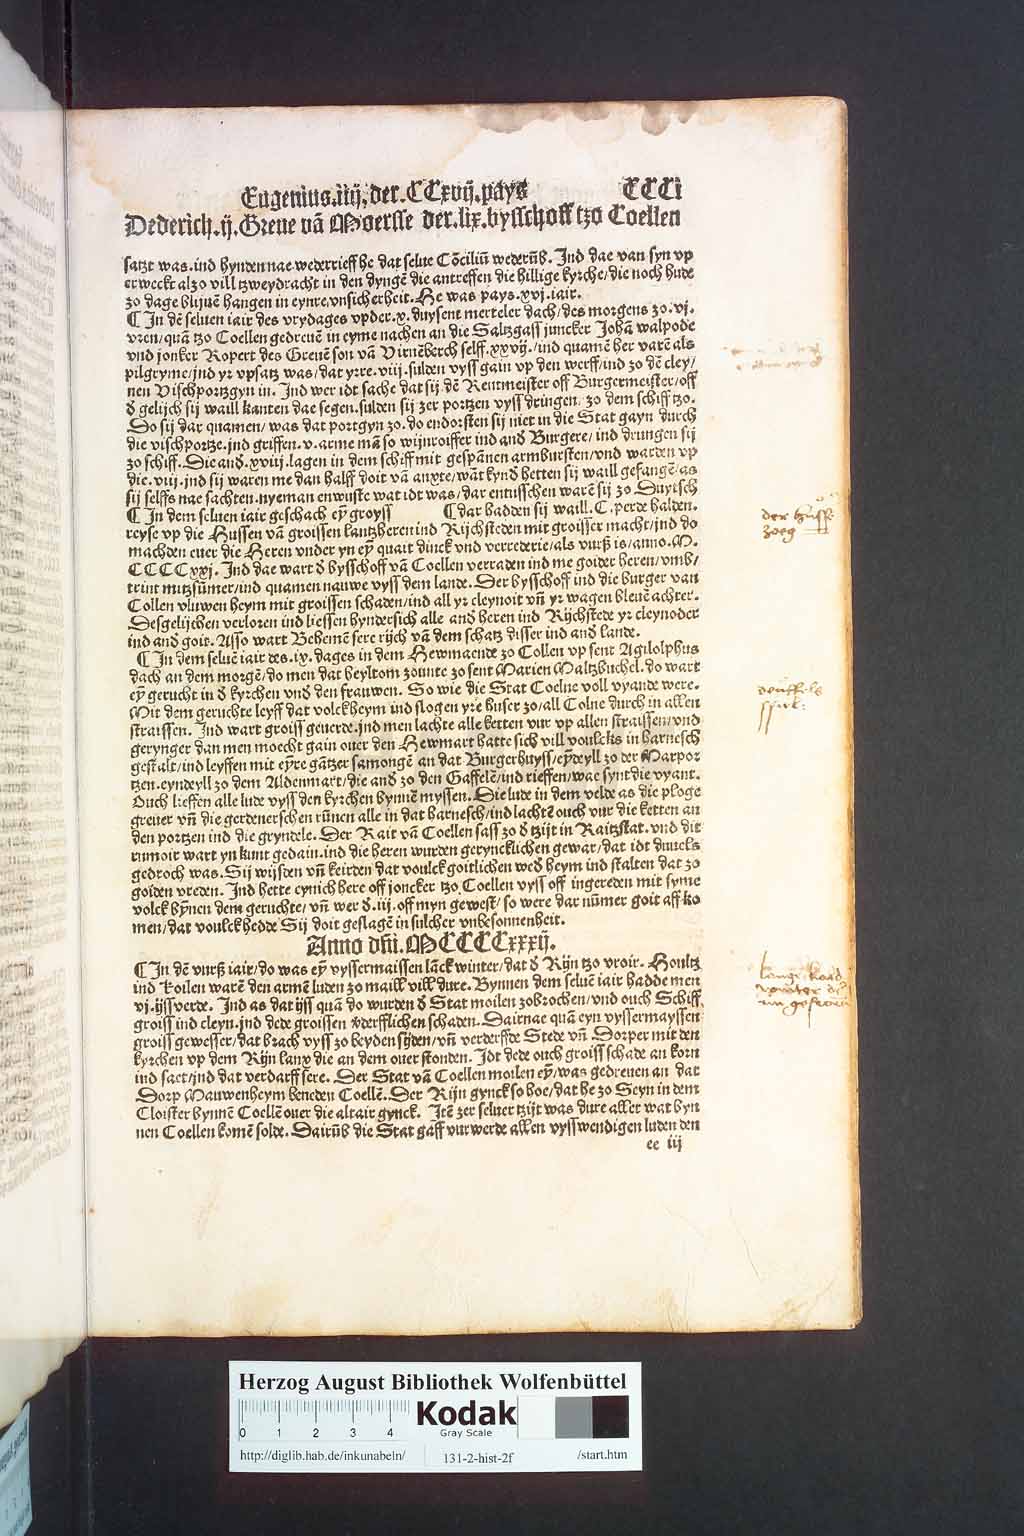 Eugenius.iiij.der.CCxvij.pays CCCi
Dederich.ij.Greue vā Moersse der.lix.bysschoff tzo Coellen
satzt was.ind hynden nae wederrieff he dat selue Cōciliū wederūb. Ind dae van syn vp
erweckt alzo vill tzweydracht in den dyngē die antreffen die hillige kyrche/die noch hude
zo dage blijuē hangen in eynre.vnsicherheit. He was pays.xvj.iair.
¶ In dē seluen iair des vrydages vp der.x.duysent merteler dach/des morgens zo.vj.
vren/quā tzo Coellen gedreuē in eyme nachen an die Saltzgass juncker Johā walpode
vnd jonker Ropert des Greuē son vā Virnēberch selff.xxvij./ind quamē her varē als
pilgryme/jnd yr vpsatz was/dat yrre.viij.sulden vyss gain vp den werff/ind zo dē cley/
nen Vischportzgyn in. Ind wer idt sache dat sij dē Rentmeister off Burgermeister/off
d̄ gelijch sij waill kanten dae segen.sulden sij zer portzen vyss dringen/ zo dem schiff tzo.
Do sij dar quamen/ was dat portgyn zo.do endorsten sij niet in die Stat gayn durch
die vischportze.jnd griffen.v.arme mā so wijnroiffer ind and̄ Burgere/ ind drungen sij
zo schiff. Die and̄.xviij.lagen in dem schiff mit gespānen armbursten/vnd warden vp
die.viij.jnd sij waren me dan halff doit vā anxte/wāt kynd̄ hetten sij waill gefangē/as
sij selffs nae sachten.nyeman enwuste wat idt was/dar entusschen warē sij zo Duytsch
¶ In dem seluen iair geschach eȳ groyss ¶ dar badden sij waill.C.perde halden.
reyse vp die Hussen vā groissen lantzheren ind Rijchsteden mit groisser macht/ind do
machden euer die Heren vnder yn eȳ quait dinck vnd verrederie/als vurß is/anno.M.
CCCCxxj. Ind dae wart d̄ bysschoff vā Coellen verraden ind me goider heren/vmb/
trint mitzsūmer/ind quamen nauwe vyss dem lande. Der bysschoff ind die burger van
Collen vluwen heym mit groissen schaden/ind all yr cleynoit vn̄ yr wagen bleuē achter.
Desgelijchen verloren ind liessen hyndersich alle and̄ heren ind Rijchstede yr cleynoder
ind and̄ goit. Also wart Behemē sere rijch vā dem schatz disser ind and̄ lande.
¶ In dem seluē iair des.ix.dages in dem Hewmaende zo Collen vp sent Agilolphus
dach an dem morgē/do men dat heyltom zounte zo sent Marien Maltzbuchel.do wart
eȳ gerucht in d̄ kyrchen vnd̄ den frauwen. So wie die Stat Coelne voll vyande were.
Mit dem geruchte leyff dat volck heym ind slogen yre huser zo/all Colne durch in allen
straissen. Ind wart groiss geuerde.jnd men lachte alle ketten vur vp allen straissen/vnd
gerynger dan men moecht gain ouer den Hewmart hatte sich vill voulcks in harnesch
gestalt/ind leyffen mit eȳre gātzer samongē an dat Burgerhuyss/eȳdeyll zo der Marpor
tzen.eyndeyll zo dem Aldenmart/die and̄ zo den Gaffelē/ind rieffen/wae synt die vyant.
Ouch lieffen alle lude vyss den kyrchen bynnē myssen. Die lude in dem velde as die ploge
greuer vn̄ die gerdenerschen rūnen alle in dat harnesch/ind lachtē ouch vur die ketten an
den portzen ind die gryndele. Der Rait vā Coellen sass zo d̄ tzijt in Raitzstat.vnd dit
rumoir wart yn kunt gedain.ind die heren wurden geryncklichen gewar/dat idt duuels
gedroch was. Sij wijsden vn̄ keirden dat voulck goitlichen wed̄ heym ind stalten dat zo
goiden vreden. Ind hette eynich here off joncker tzo Coellen vyss off ingereden mit syme
volck bȳnen dem geruchte/ vn̄ wer d̄.iij.off myn gewest/ so were dar nūmer goit aff ko
men/dat voulck hedde Sij doit geslagē in sulcher vnbesonnenheit.
Anno dn̄i.MCCCCxxxij.
¶ In dē vurß iair/do was eȳ vyssermaissen lāck winter/dat d̄ Rijn tzo vroir. Houltz
ind Koilen warē den armē luden zo maill vill dure. Bynnen dem seluē iair hadde men
vj.ijssverde. Ind as dat ijss quā do wurden d̄ Stat moilen zobrochen/vnd ouch Schiff
groiss ind cleyn.jnd dede groissen v̄derfflichen schaden. Dairnae quā eyn vyssermayssen
groiss gewesser/dat brach vyss zo beyden sijden/vn̄ verderffde Stede vn̄ Dorper mit den
kyrchen vp dem Rijn lanx die an dem ouer stonden. Idt dede ouch groiss schade an korn
ind saet/jnd dat verdarff sere. Der Stat vā Coellen moilen eȳ/was gedreuen an dat
Dorp Mauwenheym beneden Coellē. Der Rijn gynck so hoe/dat he zo Seyn in dem
Cloister bynnē Coellē ouer die altair gynck. Itē zer seluer tzijt was dure aller wat byn
nen Coellen komē solde. Dairūb die Stat gaff vurwerde allen vysswendigen luden den
ee iij
der hussē
zoeg
deuffels
spuk:
lange kald
wynter
Herzog August Bibliothek Wolfenbüttel
0 1 2 3 4
Kodak
Gray Scale
http://diglib.hab.de/inkunabeln/ 131-2-hist-2f /start.htm